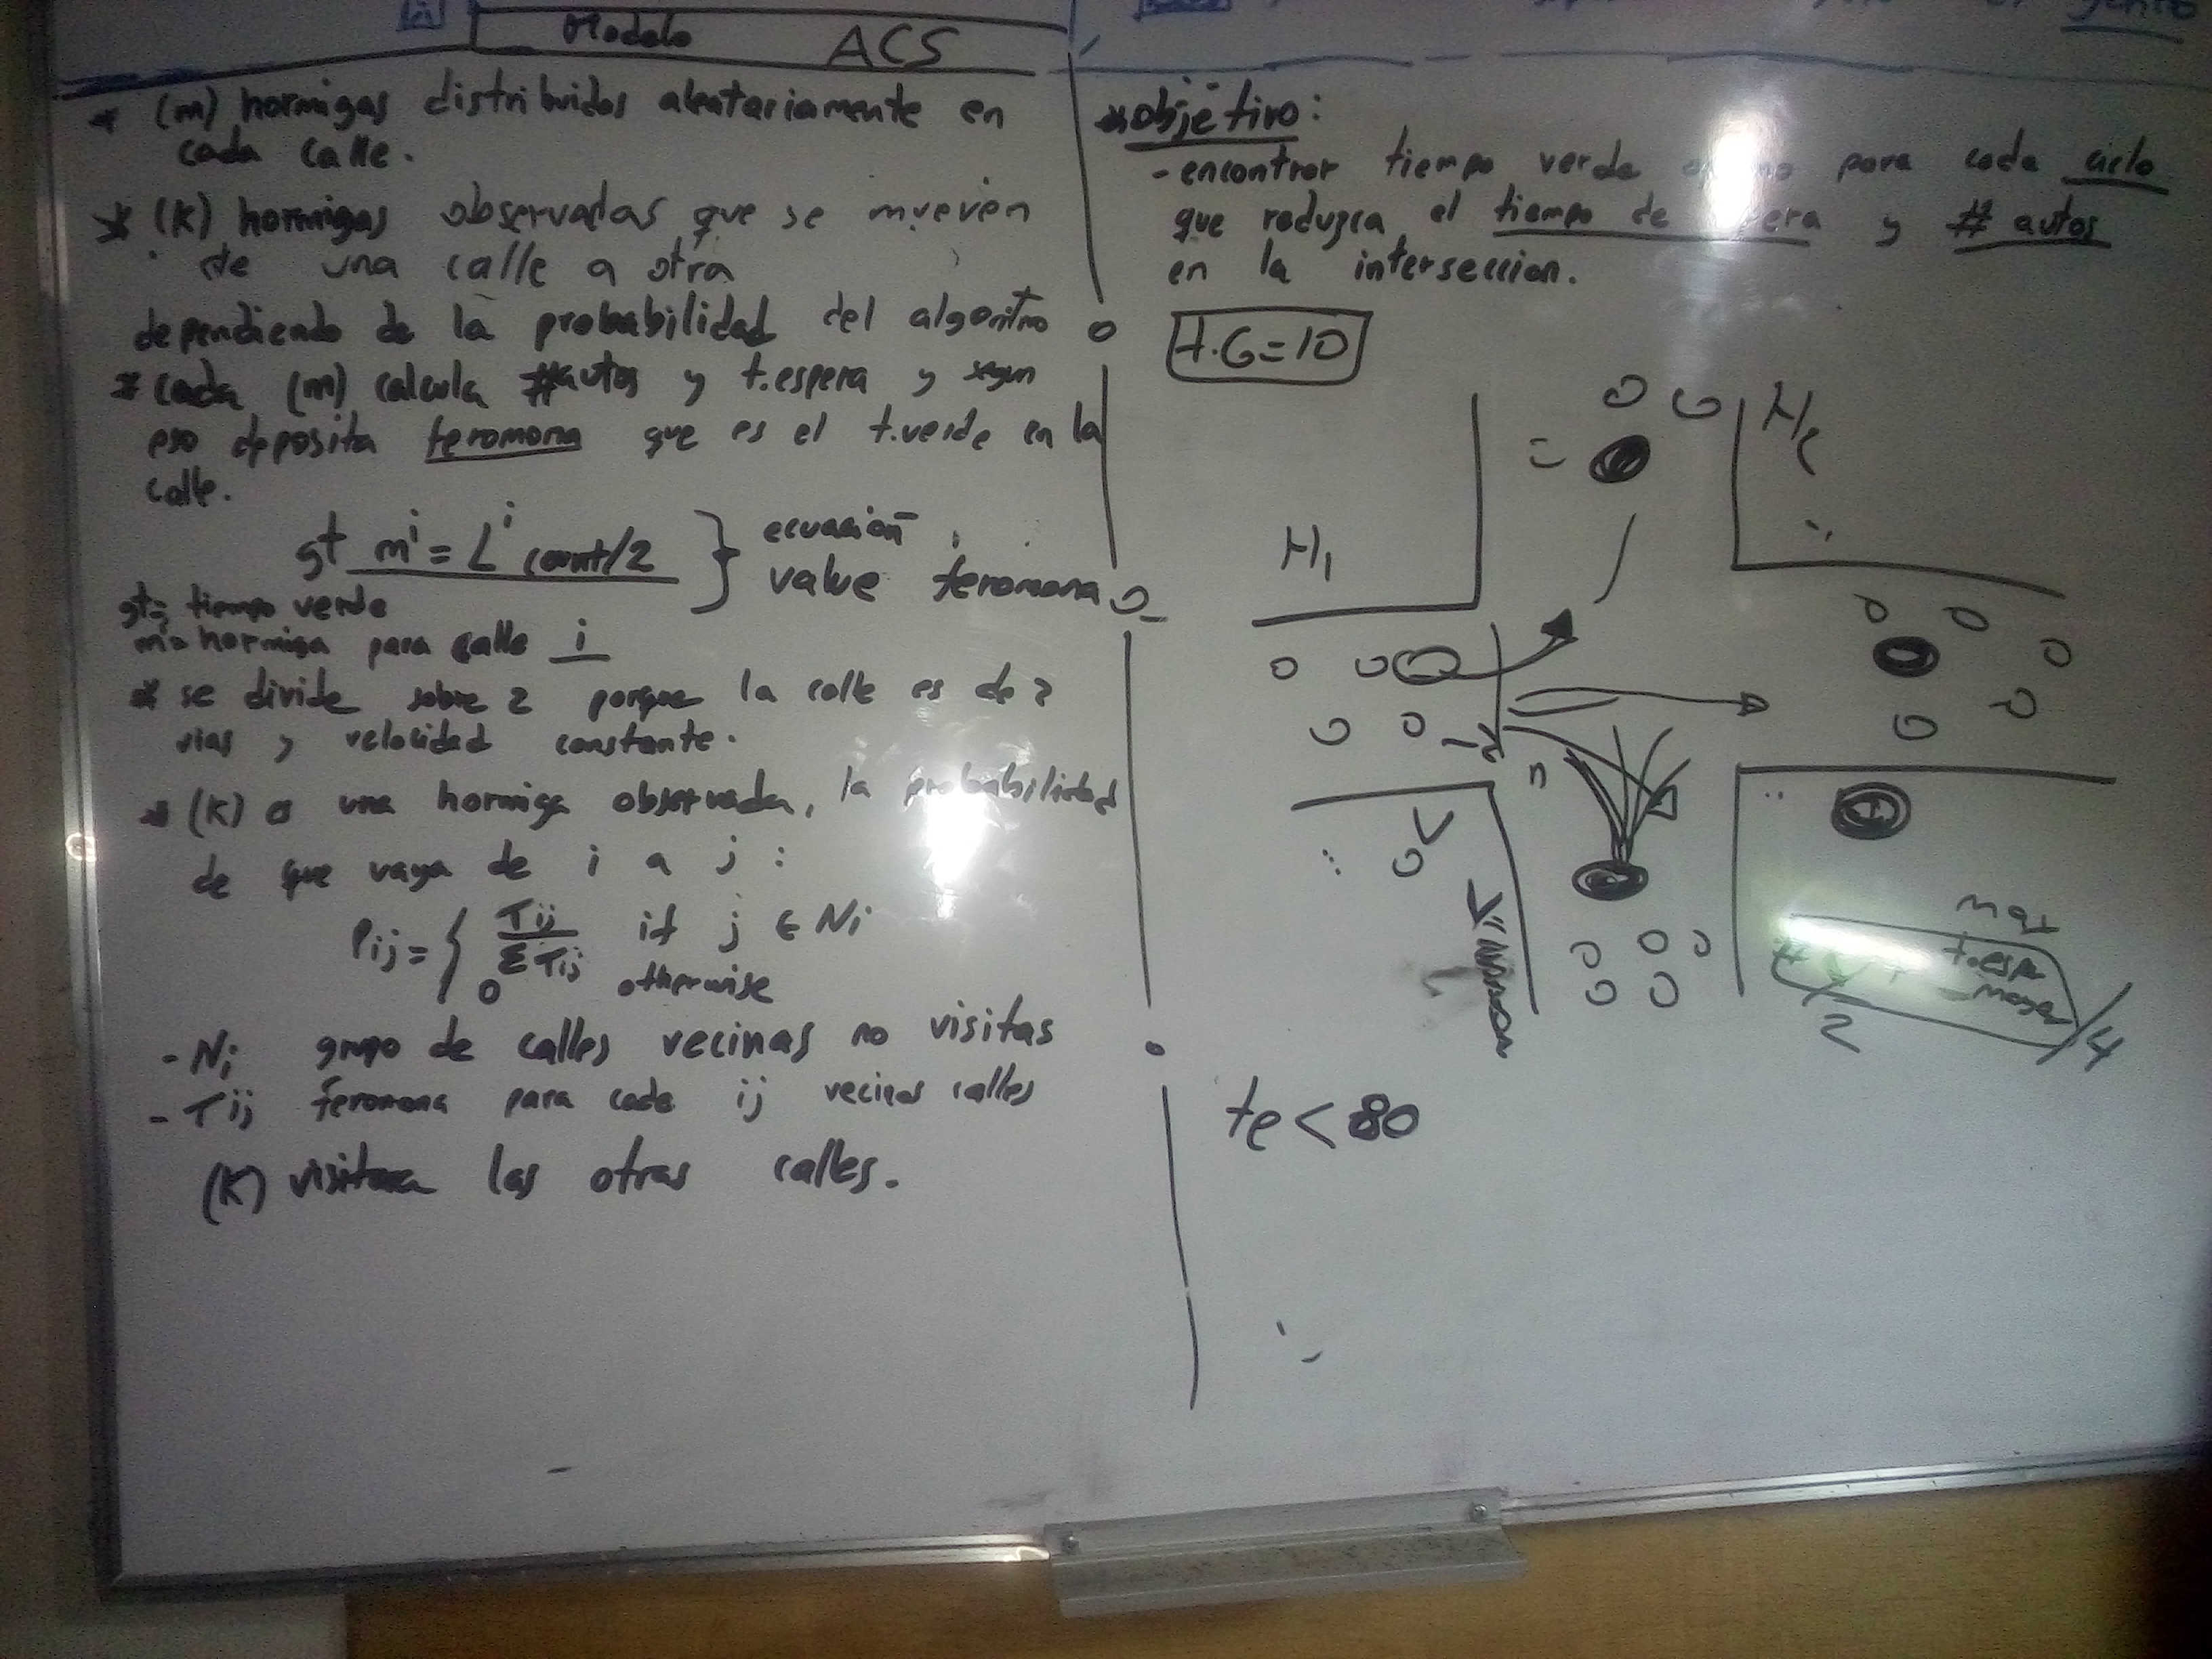 Modelo ACS
* (m) hormigas distribuidos aleatariamente en
cada calle.
* (K) hormigas observadas que se mueven
de una calle a otra
dependiendo de la probabilidad del algoritmo
* cada (m) calcula #autos y t.espera y segun
eso deposita feromona que es el t.verde en la
calle.
gt mⁱ = Lⁱ count/2 } ecuación
value feromona
gt= tiempo verde
m= hormiga para calle i
* se divide sobre 2 porque la calle es de 2
vias y velocidad constante.
* (K) o una hormiga observada, la probabilidad
de que vaya de i a j :
Pij = { Tij / ΣTij if j ∈ Ni
0 otherwise
- Ni grupo de calles vecinas no visitas
- Tij feromona para cada ij vecinas calles
(K) visitara las otras calles.
* objetivo:
- encontrar tiempo verde para cada ciclo
que reduzca el tiempo de espera y # autos
en la interseccion.
t.G=10
H1
n
max
t.esp
/2
/4
te < 80